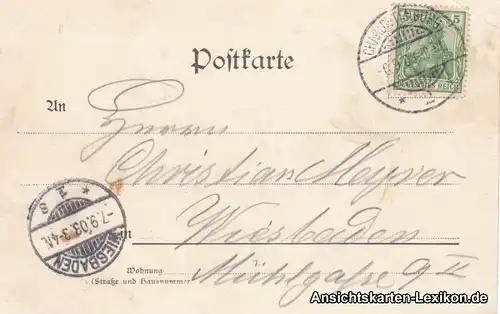 5
DEUTSCHES REICH
Postkarte
An
Herrn
Christian Meyrer
in Wiesbaden
Wohnung
(Straße und Hausnummer)
Mühlgasse 9 II
WIESBADEN
-7.9.03.3-4N.
* 1 s
Ansichtskarten-Lexikon.de